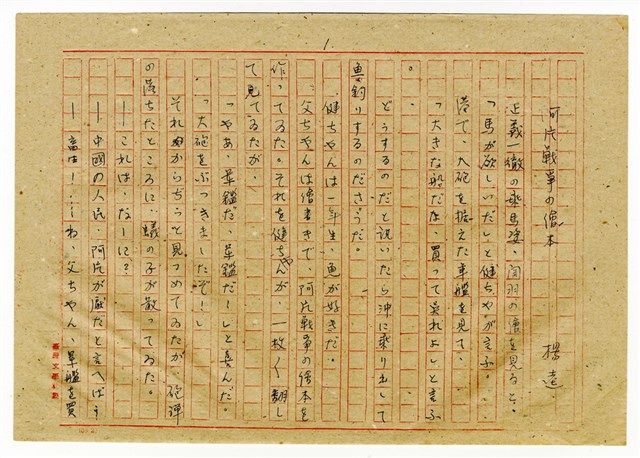 1
阿片戰爭の繪本
楊逵
正義一徹の乘馬姿、関羽の像を見ると、
「馬が欲しいだ」と健ちやが言ふ。
港で、大砲を据えた軍艦を見て、
「大きな船だな、買って呉れよ」と言ふ
。
どうするのだと訊いたら沖に乘り出して
魚釣りするのださうだ。
健ちやんは一年生、魚が好きだ。
父ちやんは繪書きで、阿片戰爭の繪本を
作ってゐた。それを健ちやんが、一枚〱翻し
て見てゐたが、
「やあ、軍艦だ、軍艦だー」と喜んだ。
「大砲をぶっ きしたぞ！」
それからぢっと見つめてゐたが、砲彈
の落ちたところに、蟻の子が散ってゐた。
──これは、なーに？
──中國の人民、阿片が厭だと言へばう
──畜生！…ね、父ちやん、軍艦を買